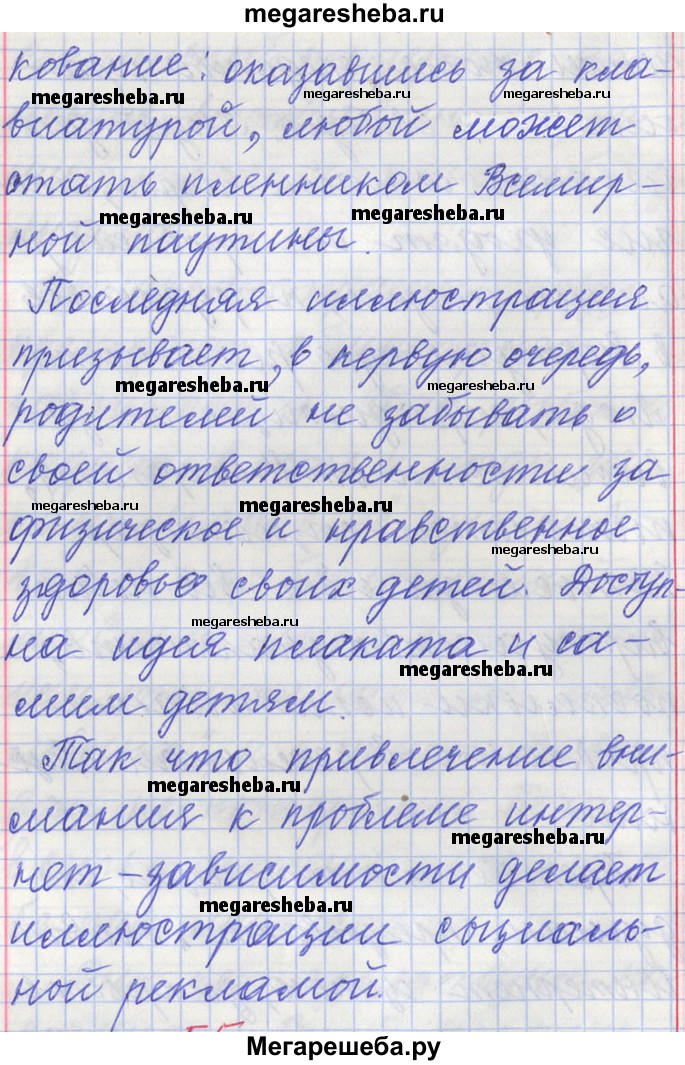 megaresheba.ru
кование: оказавшись за кла-
megaresheba.ru megaresheba.ru megaresheba.ru
виатурой, любой может
стать пленником Всемир-
megaresheba.ru megaresheba.ru
ной паутины.
Последняя иллюстрация
призывает, в первую очередь,
megaresheba.ru megaresheba.ru
родителей не забывать о
своей ответственности за
megaresheba.ru megaresheba.ru
физическое и нравственное
megaresheba.ru
здоровье своих детей. Доступ-
megaresheba.ru
на идея плаката и са-
megaresheba.ru
мим детям.
Так что привлечение вни-
megaresheba.ru
мания к проблеме интер-
megaresheba.ru
нет-зависимости делает
megaresheba.ru
иллюстрации социаль-
ной рекламой.
Мегарешеба.ру